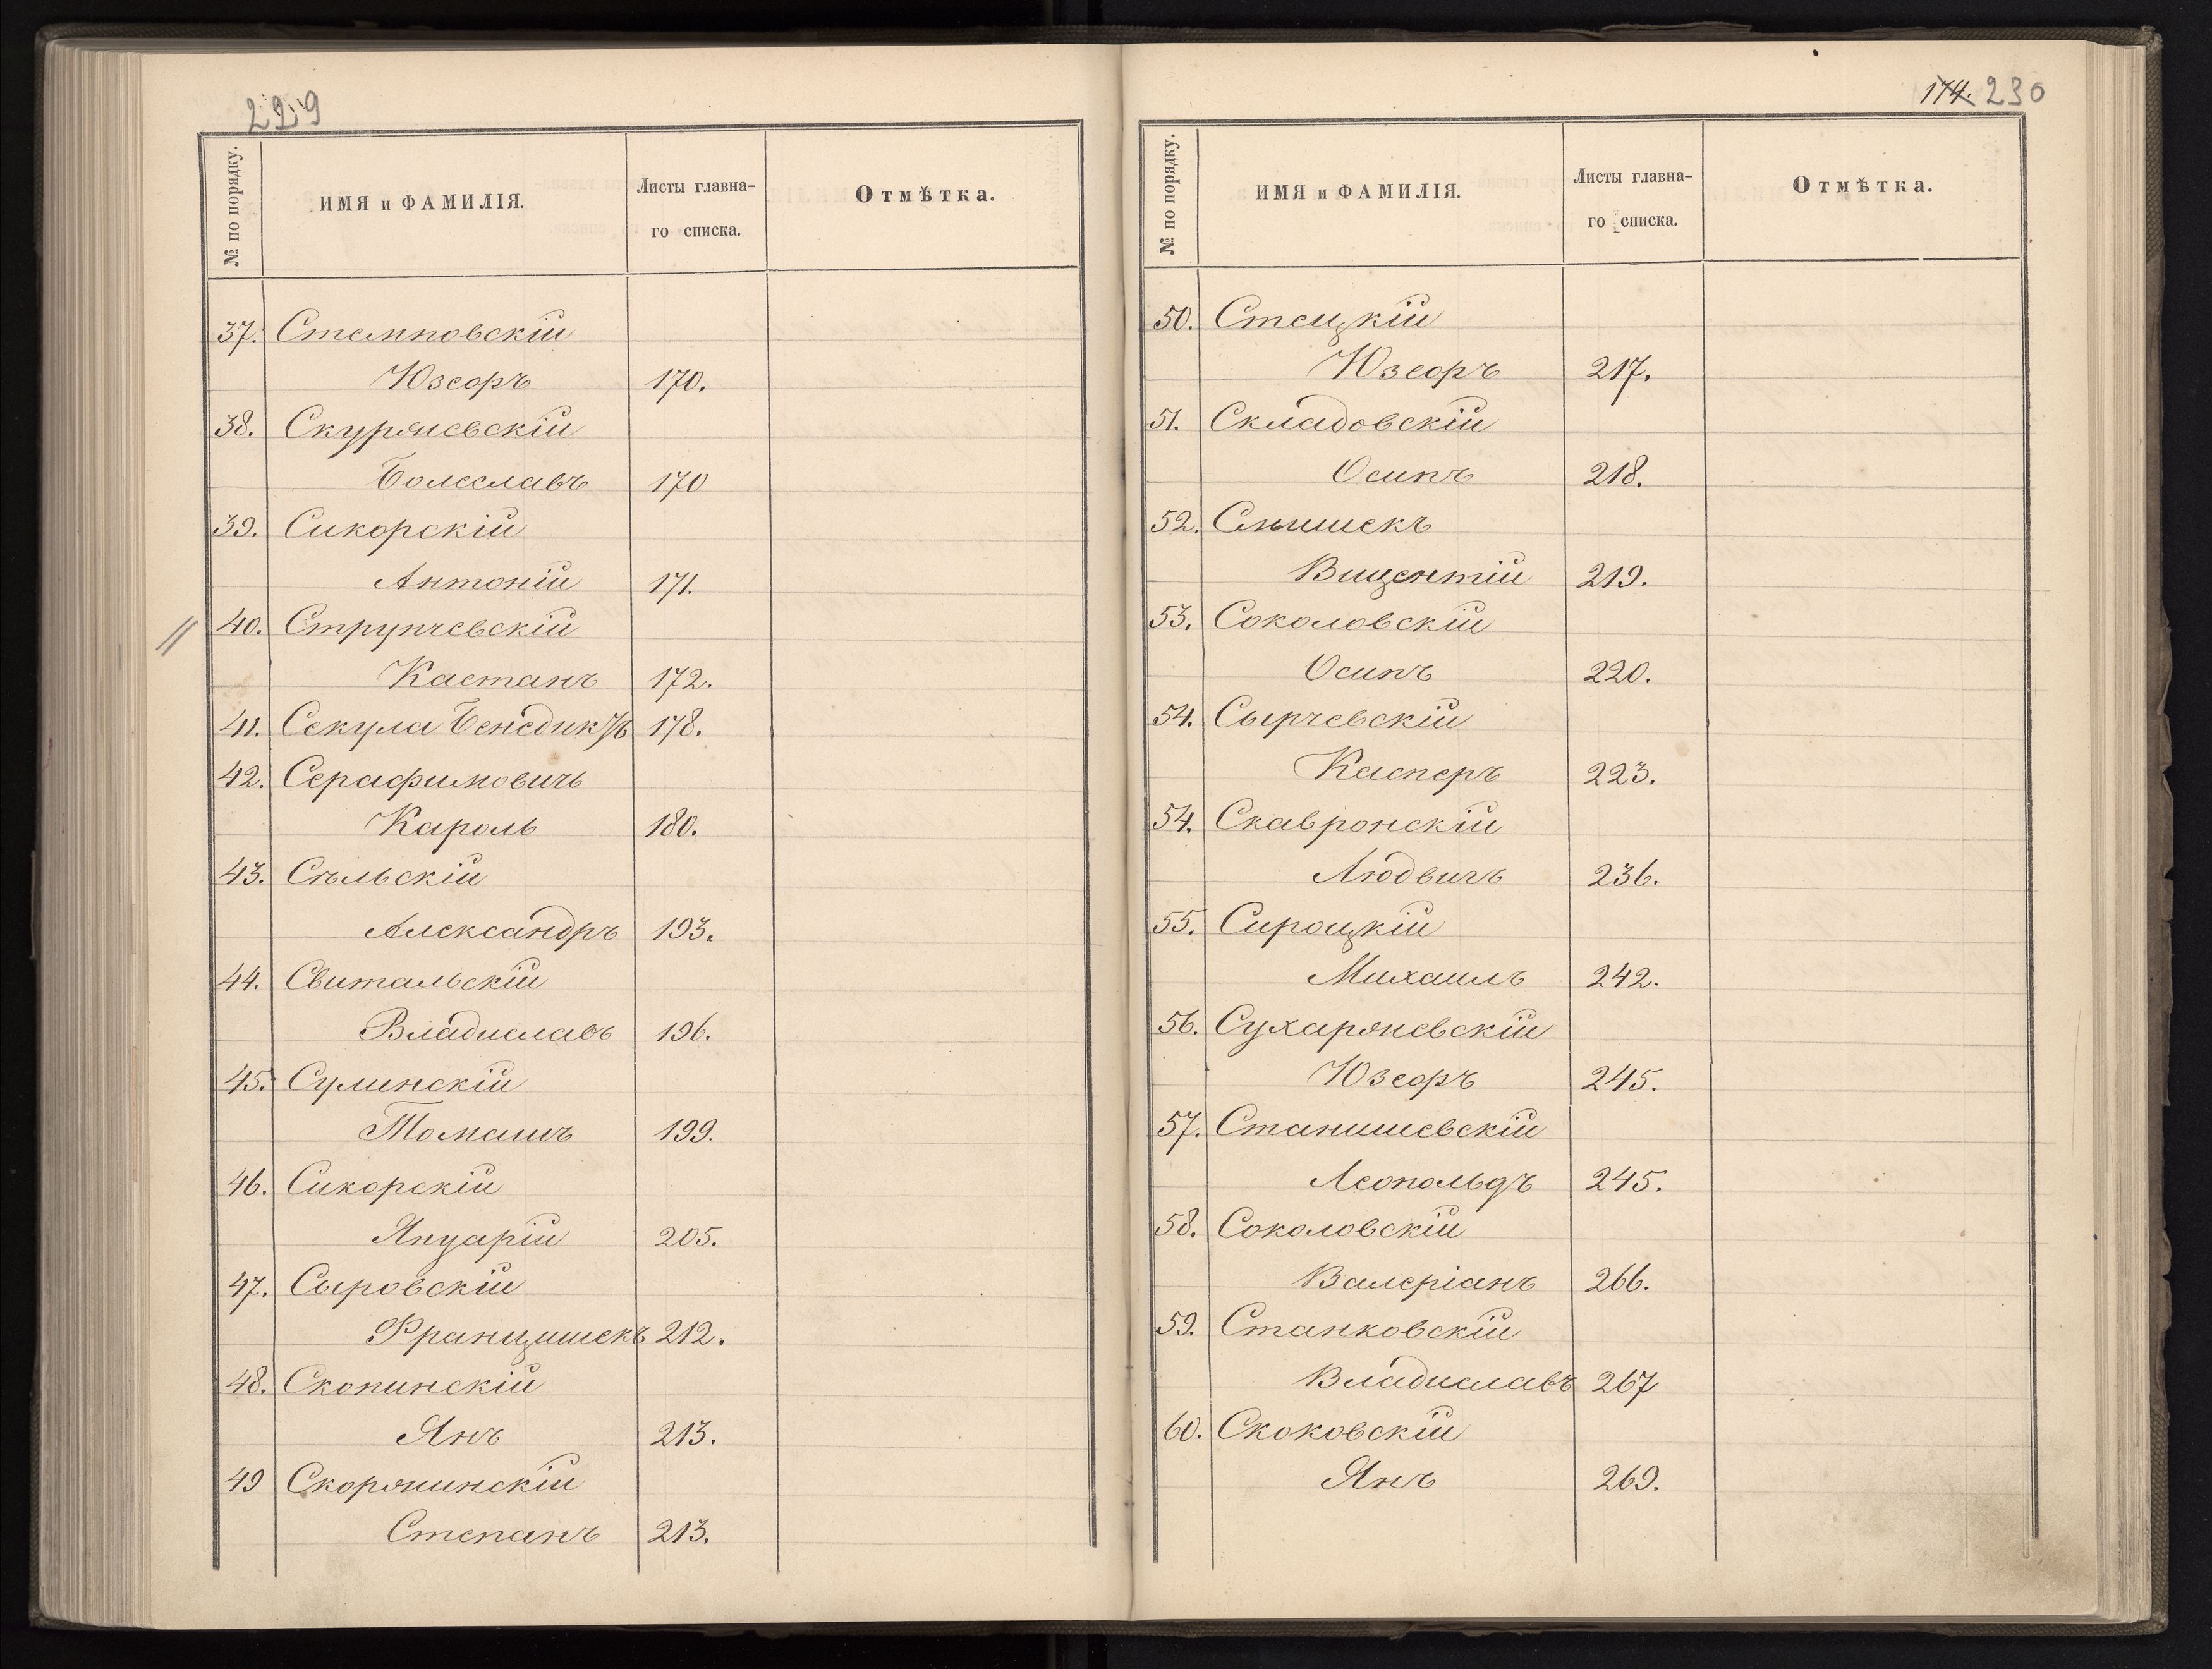 229
№ по порядку.
ИМЯ и ФАМИЛІЯ.
Листы главна-
го списка.
Отмѣтка.
37. Стемповскій
Юзефъ 170.
38. Скуржевскій
Болеславъ 170
39. Сикорскій
Антоній 171.
40. Струпчевскій
Каетанъ 172.
41. Секула Бенедиктъ 178.
42. Серафимовичъ
Кароль 180.
43. Сѣльскій
Александръ 193.
44. Свитальскій
Владиславъ 196.
45. Сулинскій
Томашъ 199.
46. Сикорскій
Януарій 205.
47. Сыровскій
Францишекъ 212.
48. Скопинскій
Янъ 213.
49 Скоржинскій
Степанъ 213.
174. 230
№ по порядку.
ИМЯ и ФАМИЛІЯ.
Листы главна-
го списка.
Отмѣтка.
50. Стецкій
Юзефъ 217.
51. Складовскій
Осипъ 218.
52. Снишекъ
Вицентій 219.
53. Соколовскій
Осипъ 220.
54. Сырчевскій
Касперъ 223.
54. Скавронскій
Людвигъ 236.
55. Сироцкій
Михаилъ 242.
56. Сухаржевскій
Юзефъ 245.
57. Станишевскій
Леопольдъ 245.
58. Соколовскій
Валеріанъ 266.
59. Станковскій
Владиславъ 267
60. Скоковскій
Янъ 269.